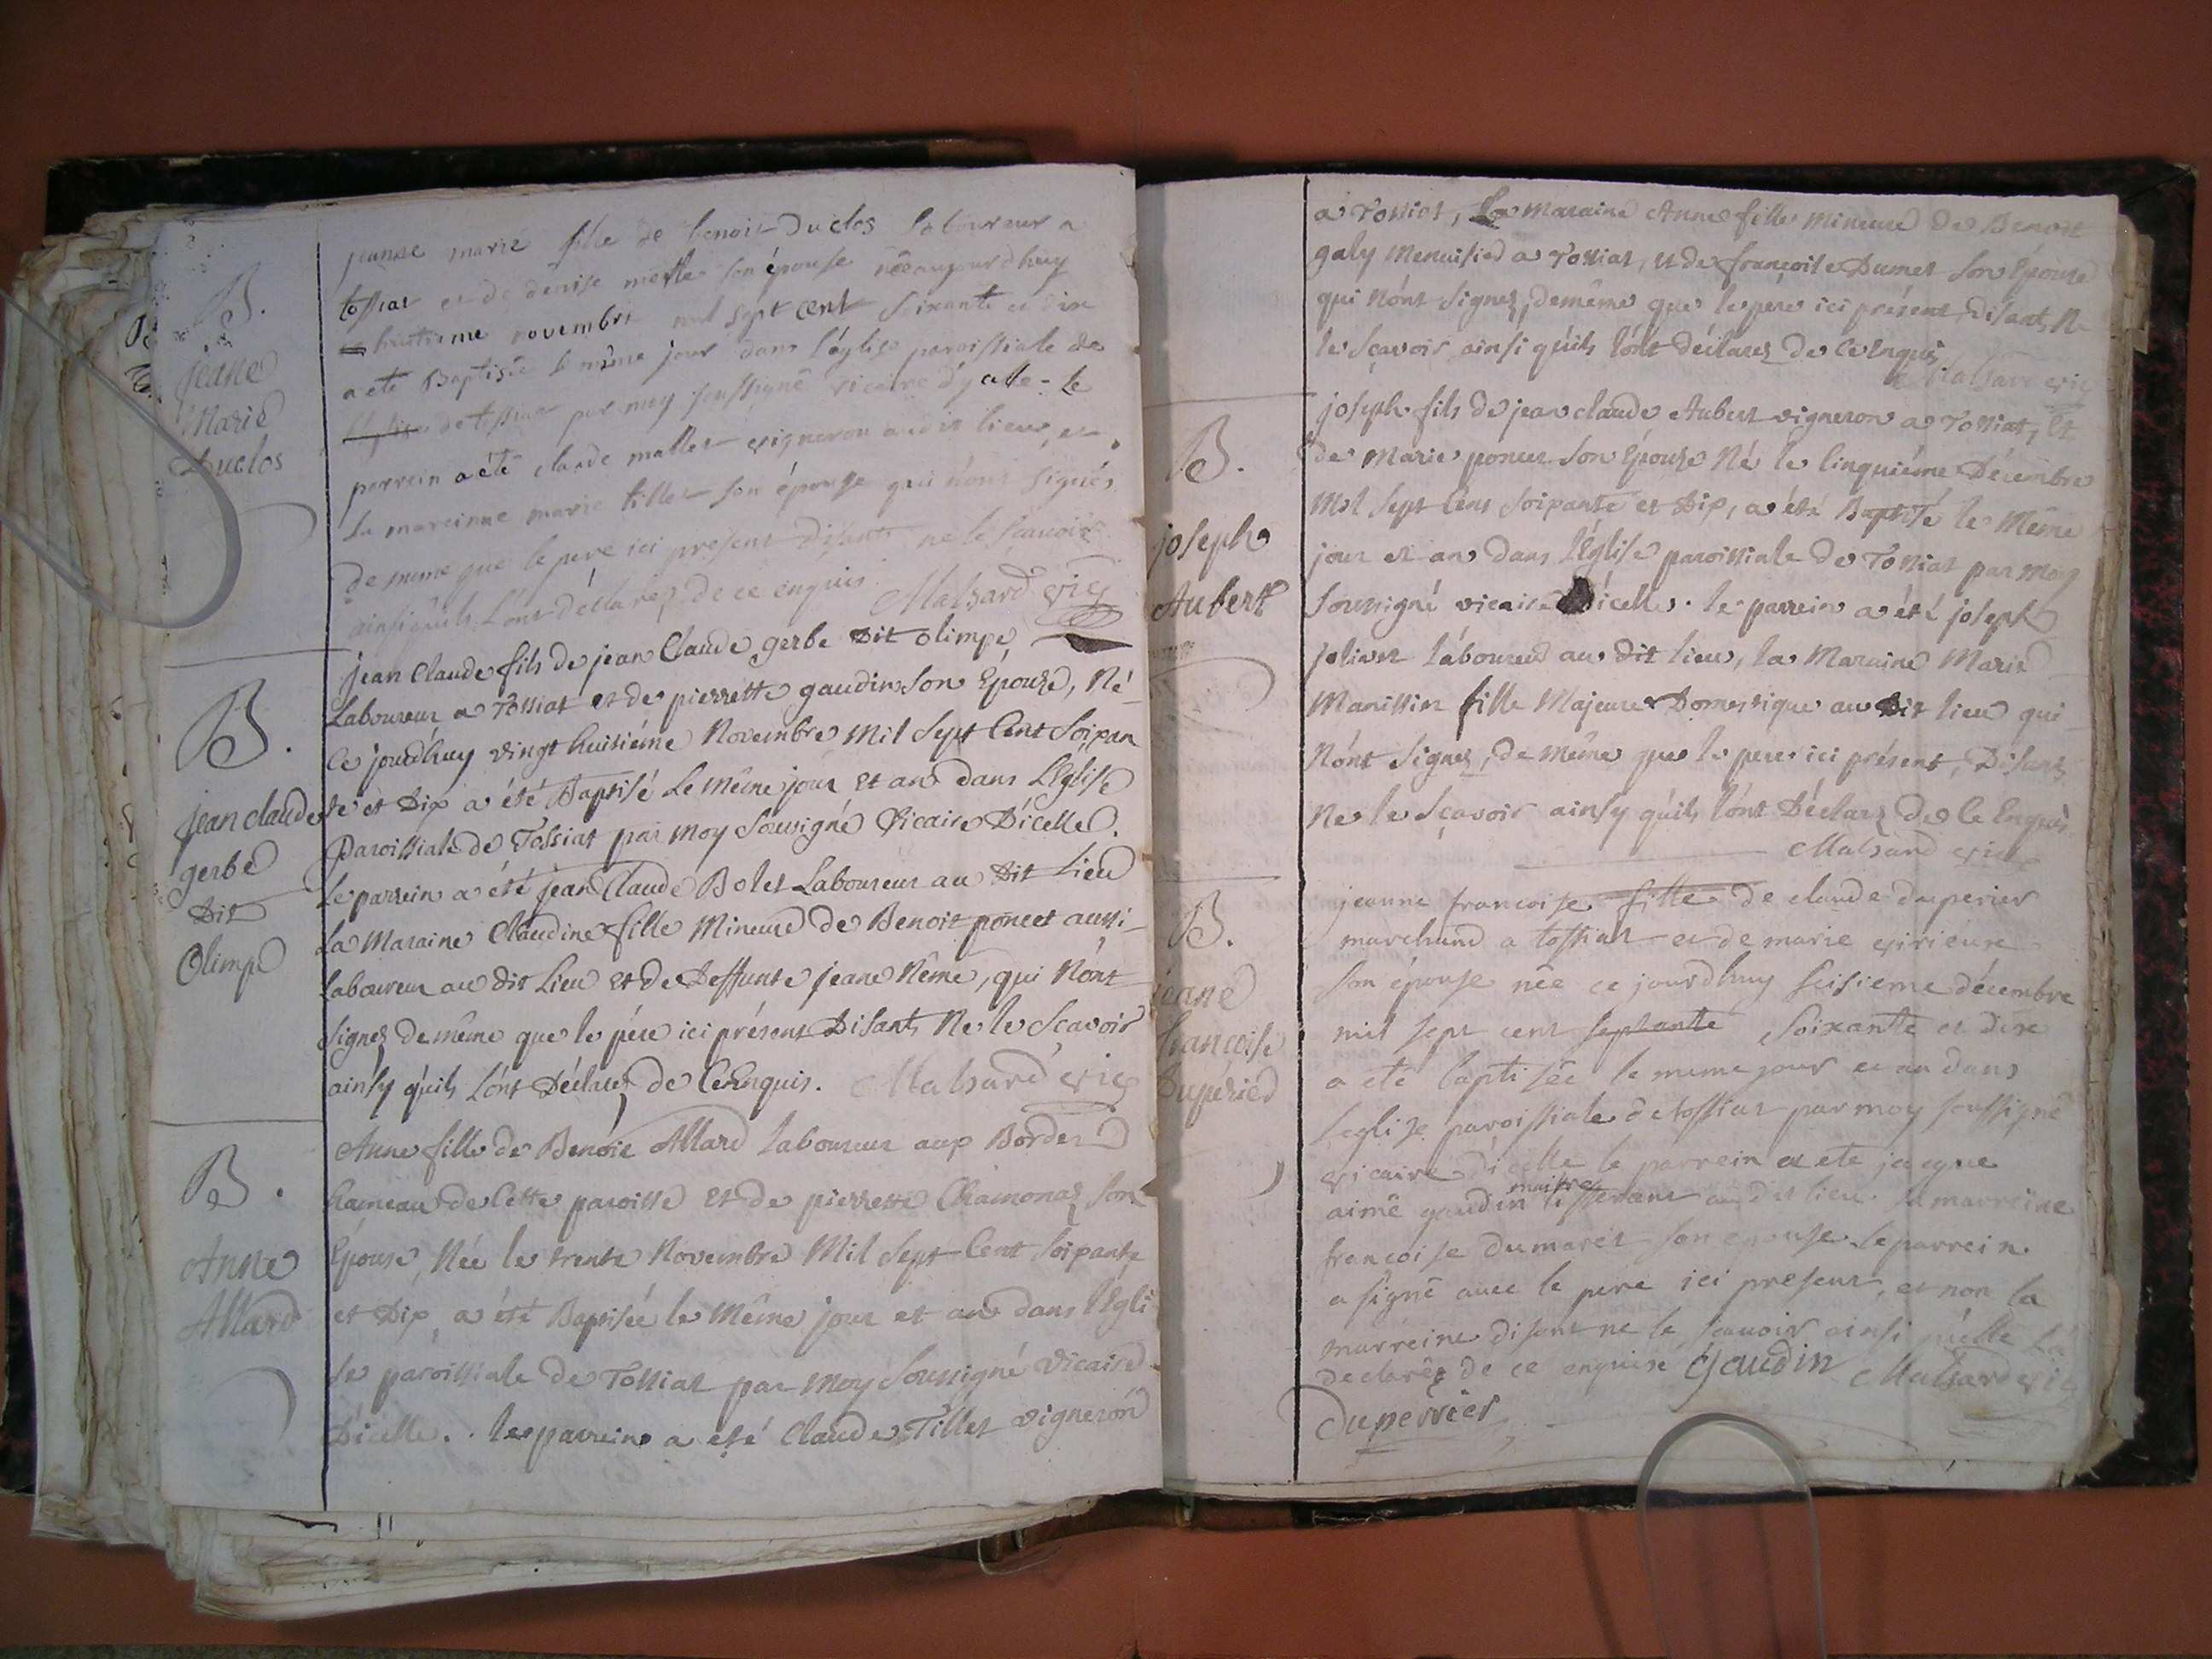 B.
jeane
Marie
Duclos
jeanne marie fille de benoit Duclos laboureur a
tossiat et de denise merle son épouse née aujourdhuy
huitieme novembre mil sept cent soixante et dix
a eté Baptisée le même jour dans l'églize paroissiale de
de tossiat par moy soussigné vicaire d'ycelle. le
parrein a été claude mallet vigneron audit lieu, et
la mareinne marie tillet son épouse qui n'ont signés
de meme que le pere ici present disants ne le sçavoir
ainsi qu'ils l'ont déclarés de ce enquis. Malsard vic
B.
jean claude
gerbe
Dit
Olimpe
jean Claude fils de jean Claude gerbe Dit olimpe,
Laboureur a Tossiat et de pierrette gaudin son Epouse, Né
ce jourdhuy vingt huitiéme Novembre Mil Sept Cent Soixan
te et Dix a été Baptisé Le Même jour Et an dans L'Eglise
Paroissiale de Tossiat par moy Soussigné Vicaire D'icelle.
Le parrein a été jean Claude Bolet Laboureur au Dit Lieu
La Maraine Claudine fille Mineure de Benoit poncet aussi
Laboureur au dit Lieu et de Deffunte jeane Nême, qui N'ont
signez de même que le pére ici présent Disants Ne le Scavoir
ainsy qu'ils L'ont Déclarez de Ce Enquis. Malsard vic
B.
Anne
Allard
Anne fille de Benoit Allard laboureur aux Bordes
hameau de Cette paroisse et de pierrette Chamonaz son
Epouse, Née le trente Novembre Mil Sept Cent Soixante
et Dix a été Baptisée le Même jour et an dans l'Egli
se paroissiale de Tossiat par moy Soussigné Vicaire
D'icelle. le parrein a été Claude Tillet vigneron
a Tossiat, La Maraine Anne fille mineure de Benoit
galy Menuisier a Tossiat, et de françoise Dumet Son Epouse
qui N'ont Signez, demême que le pére ici présent, disants Ne
le Sçavoir ainsi qu'ils l'ont déclarez de Ce Enquis
Malsard vic
B.
joseph
Aubert
joseph fils de jean claude Aubert vigneron a Tossiat, Et
de Marie poncet Son Epouse Né le Cinquiéme Décembre
Mil Sept Cent Soixante et Dix, a été Baptisé le Même
jour et an dans l'Eglise paroissiale de Tossiat par moy
Soussigné vicaire D'icelle. le parrein a été joseph
jolivet laboureur au dit lieu, la Maraine Marie
Manissier fille Majeure Domestique au Dit lieu qui
N'ont Signez, de Même que le pere ici présent, Disants
Ne le Sçavoir ainsy qu'ils l'ont Déclarez de Ce Enquis.
Malsard vic
B.
jeane
françoise
Dupérier
jeanne francoise fille de claude duperier
marchand a tossiat et de marie
son épouse née ce jourdhuy seisieme décembre
mil sept cent septante soixante et dix
a eté baptisée le meme jour et an dans
l'eglize paroissiale de tossiat par moy soussigné
vicaire d'icelle le parrein a ete jacque
maitre
aimé gaudin tisserant audit lieu. la marreine
francoise dumarêt son epouse le parrein
a signé avec le pere ici present, et non la
marreine disant ne le scavoir ainsi qu'elle l'a
declarée de ce enquise Gaudin Malsard vic
Duperrier